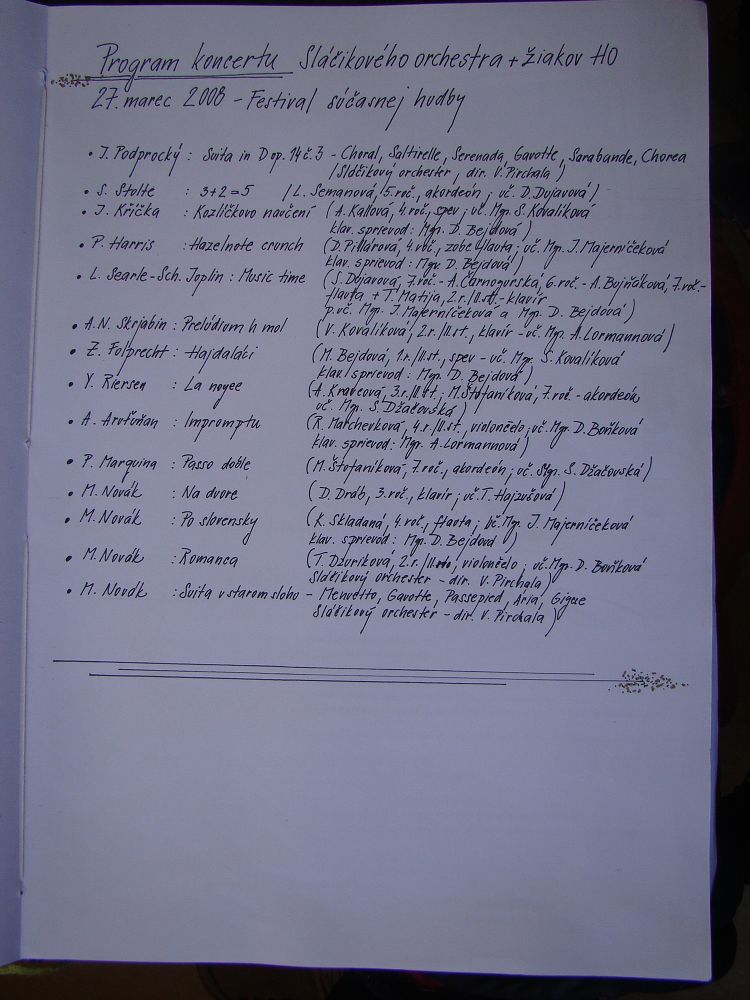 Program koncertu Sláčikového orchestra + žiakov HO
27. marec 2008 - Festival súčasnej hudby
• J. Podprocký : Suita in D op. 14 č. 3 - Choral, Saltirelle, Serenada, Gavotte, Sarabande, Chorea
/Sláčikový orchester, dir. V. Pirchala)
• S. Stolte : 3+2=5 /L. Semanová, 5. roč., akordeón; uč. D. Dujavová)
• J. Křička : Kozlíčkovo naučení (A. Kallová, 4. roč., spev; uč. Mgr. S. Kovalíková
klav. sprievod: Mgr. D. Bejdová)
• P. Harris : Hazelnote crunch (D. Pillárová, 4. roč., zobc. flauta; uč. Mgr. J. Majerníčeková
klav. sprievod: Mgr. D. Bejdová)
• L. Searle-Sch. Joplin : Music time (S. Dujavová, 7. roč. - A. Čarnogurská, 6. roč. - A. Bujňáková, 7. roč. -
flauta + T. Matija, 2. r./II. st. - klavír
p. uč. Mgr. J. Majerníčeková a Mgr. D. Bejdová)
• A. N. Skrjabin : Prelúdium h mol (V. Kovalíková, 2. r./II. st., klavír - uč. Mgr. A. Lormannová)
• Z. Folprecht : Hajdaláci (M. Bejdová, 1. r./II. st., spev - uč. Mgr. S. Kovalíková
klav. sprievod: Mgr. D. Bejdová)
• Y. Riersen : La noyee (A. Kravcová, 3. r./II. st.; M. Štofaníková, 7. roč. - akordeón
uč. Mgr. S. Džačovská)
• A. : Impromptu (R. Marchevková, 4. r./II. st., violončelo; uč. Mgr. D. Boňková
klav. sprievod: Mgr. A. Lormannová)
• P. Marquina : Passo doble (M. Štofaníková, 7. roč., akordeón; uč. S. Džačovská)
• M. Novák : Na dvore (D. Drab, 3. roč., klavír; uč. T. Hajzušová)
• M. Novák : Po slovensky (K. Skladaná, 4. roč., flauta; uč. Mgr. J. Majerníčeková
klav. sprievod: Mgr. D. Bejdová)
• M. Novák : Romanca (T. Džuriková, 2. r./II. st., violončelo; uč. Mgr. D. Boňková
Sláčikový orchester - dir. V. Pirchala)
• M. Novák : Suita v starom slohu - Menuetto, Gavotte, Passepied, Aria, Gigue
Sláčikový orchester - dir. V. Pirchala)